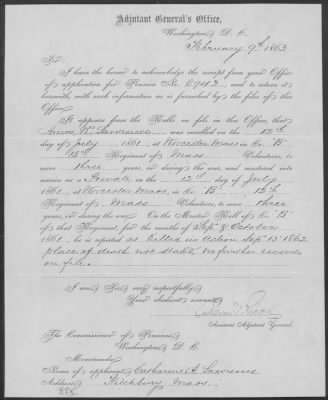 Adjutant General's Office,
Washington, D. C.
February 9th, 1863
Sir:
I have the honor to acknowledge the receipt from your Office
of application for Pension No. and to return it
herewith, with such information as is furnished by the files of this
Office.
It appears from the Rolls on file in this Office, that
Lawrence was enrolled on the 12th
day of July, 1861, at Worcester Mass in Co. B
15th Regiment of Mass Volunteers, to
serve three years, or during the war, and mustered into
service as a Private on the 12th day of July
1861, at Worcester Mass, in Co. B 15th
Regiment of Mass Volunteers, to serve three
years, or during the war. On the Muster Roll of Co. B
of that Regiment, for the months of Sep & October
1862, he is reported as Killed in action Sep 1862
place of death not stated, no further records
on file.
I am Sir, very respectfully,
Your obedient servant,
Assistant Adjutant General.
The Commissioner of Pensions,
Washington, D. C.
Memoranda:
Name of applicant, Catharine A. Lawrence
Address, Fitchburg Mass.